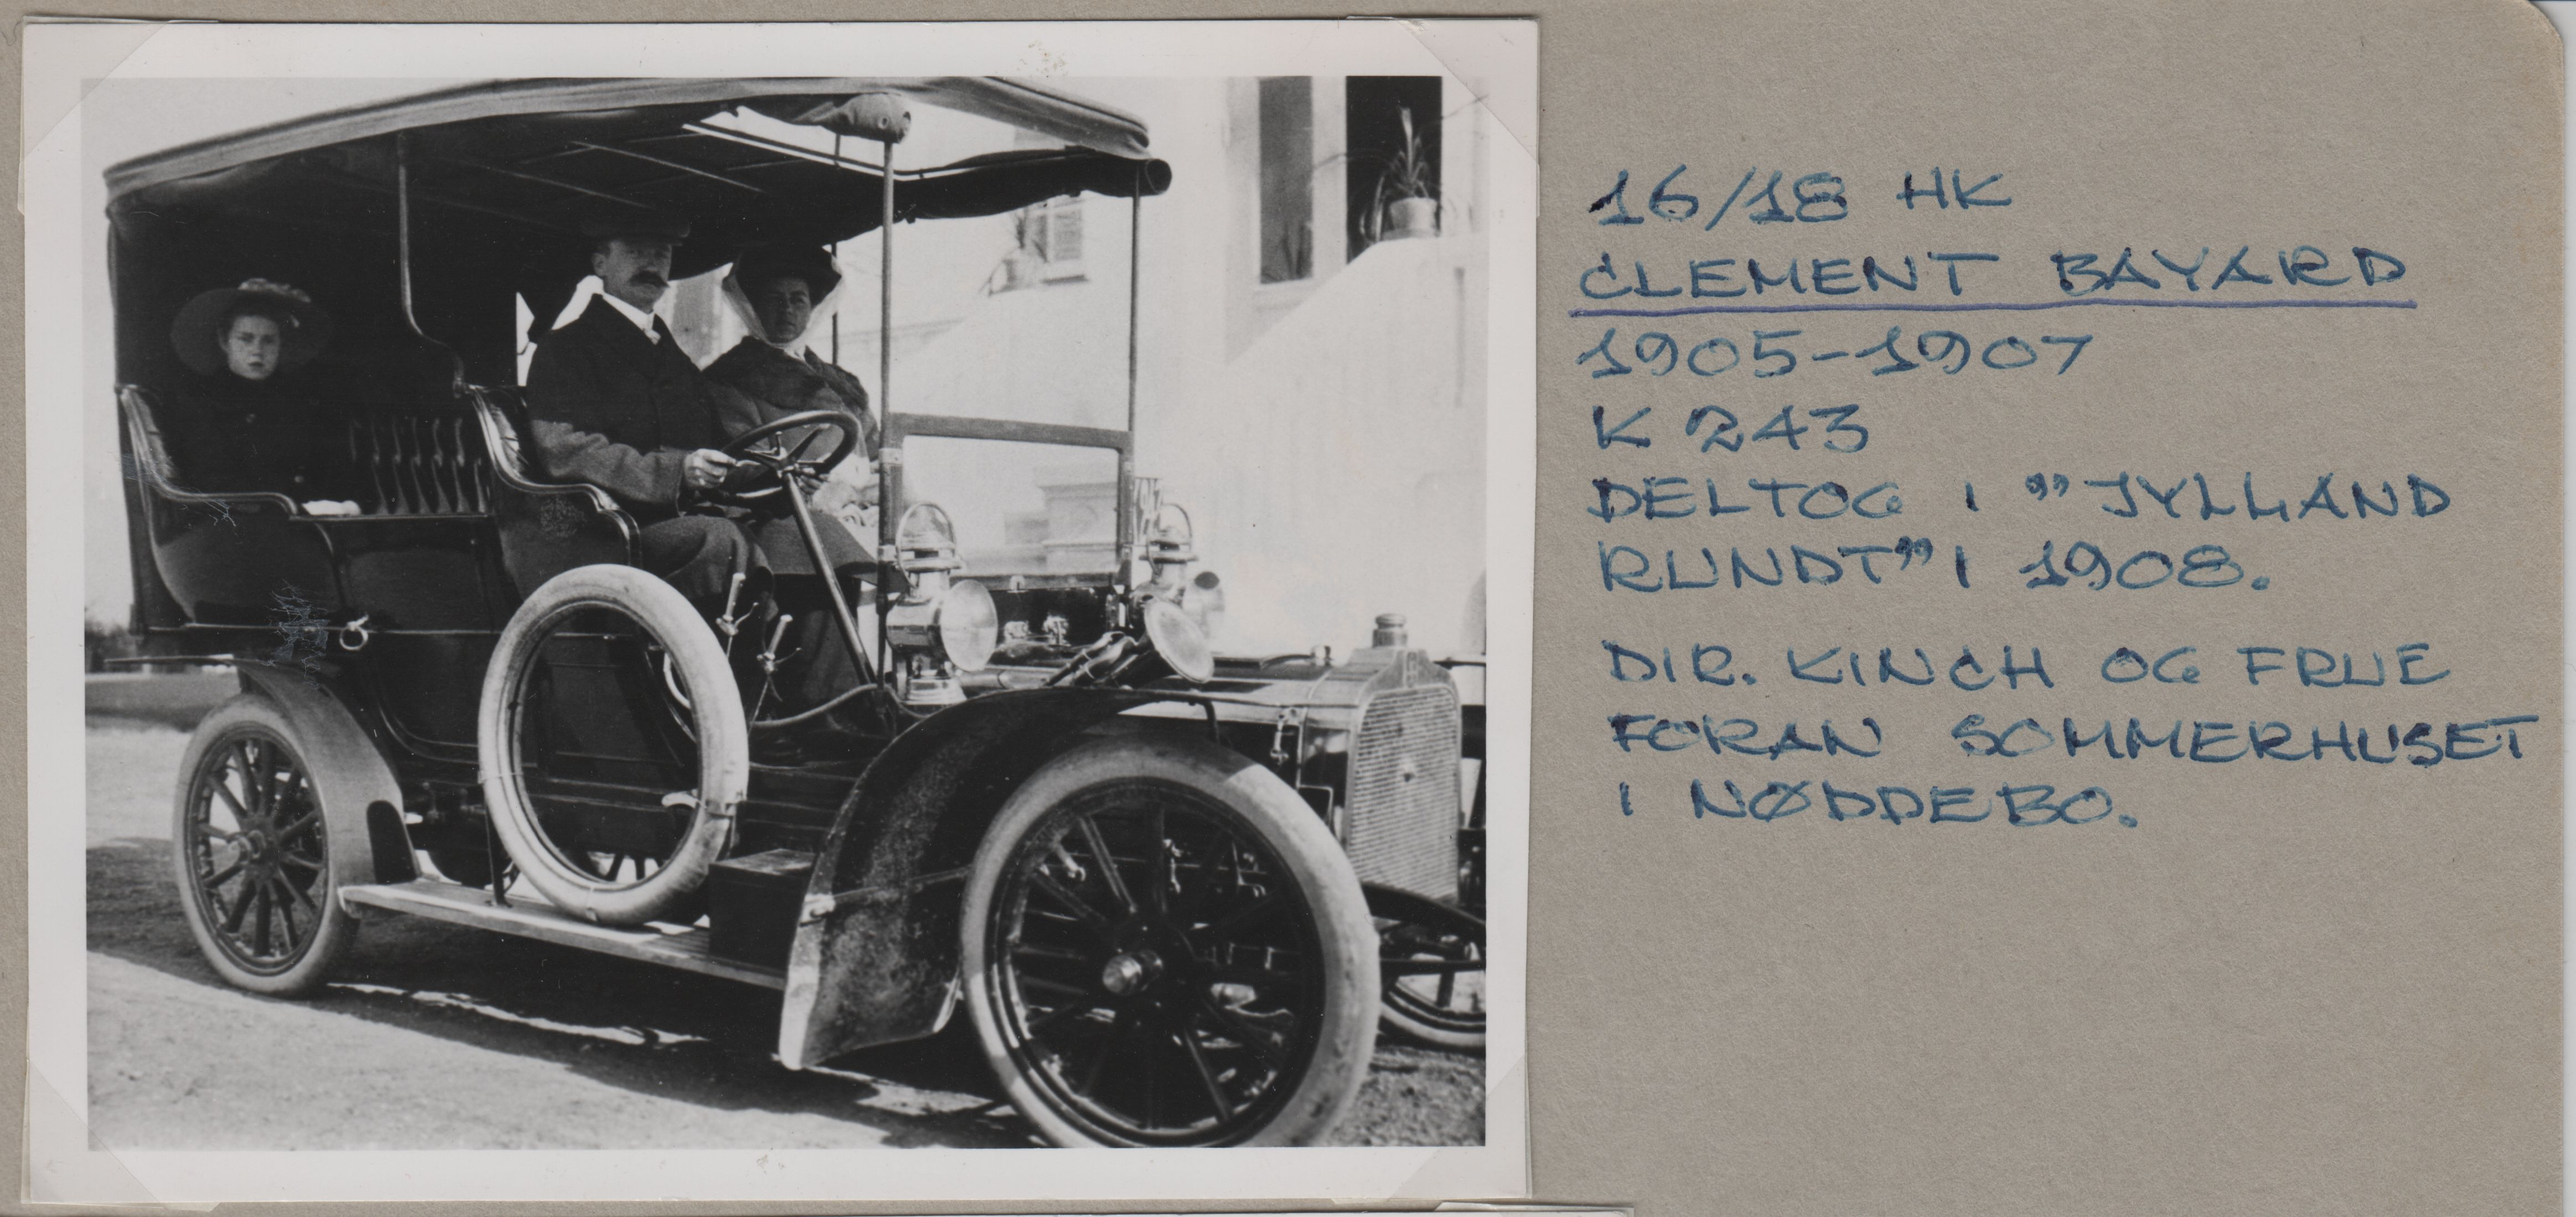 16/18 HK
CLEMENT BAYARD
1905-1907
K 243
DELTOG I "JYLLAND
RUNDT" I 1908.
DIR. KINCH OG FRUE
FORAN SOMMERHUSET
I NØDDEBO.